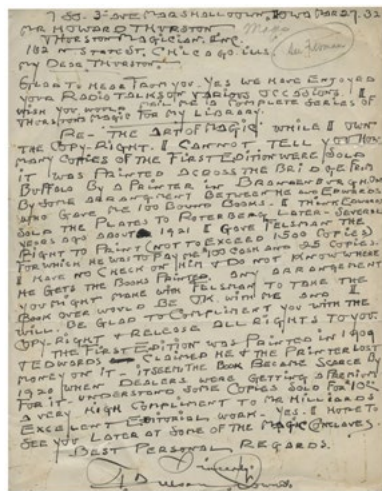 7 So. 3rd Ave Marshalltown, Iowa Mar 27. 32
Mr Howard Thurston
Thurston Magician, Inc.
162 N State St, Chicago. Ills.
My Dear Thurston.
Glad to hear from you. Yes we have enjoyed
your radio talks on various occasions. I
wish you would mail me a complete series of
Thurston's Magic for my library.
Re- The Art of Magic, while I own
the copy-right. I cannot tell you how
many copies of the first edition were sold
it was printed across the bridge from
Buffalo by a printer in
by some arrangement between he & Edwards
who gave me 100 bound books. I think Edwards
sold the plates to Roterberg later - several
years ago about 1921 I gave Felsman the
right to print (not to exceed 1500 copies)
for which he was to pay me 100 cash and 25 copies.
I have no check on him & do not know where
he gets the books printed. Any arrangement
you might make with Felsman to take the
book over would be OK. with me and I
will be glad to compliment you with the
copy-right & release all rights to you.
The first edition was printed in 1909
& Edwards claimed he & the printer lost
money on it - it seems the book became scarce by
1920 when dealers were getting a premium
for it - understand some copies sold for 10.00
a very high compliment to Mr Hilliards
excellent editorial work. Yes. I hope to
see you later at some of the magic conclaves.
Best personal regards.
Sincerely,
T. Nelson Downs